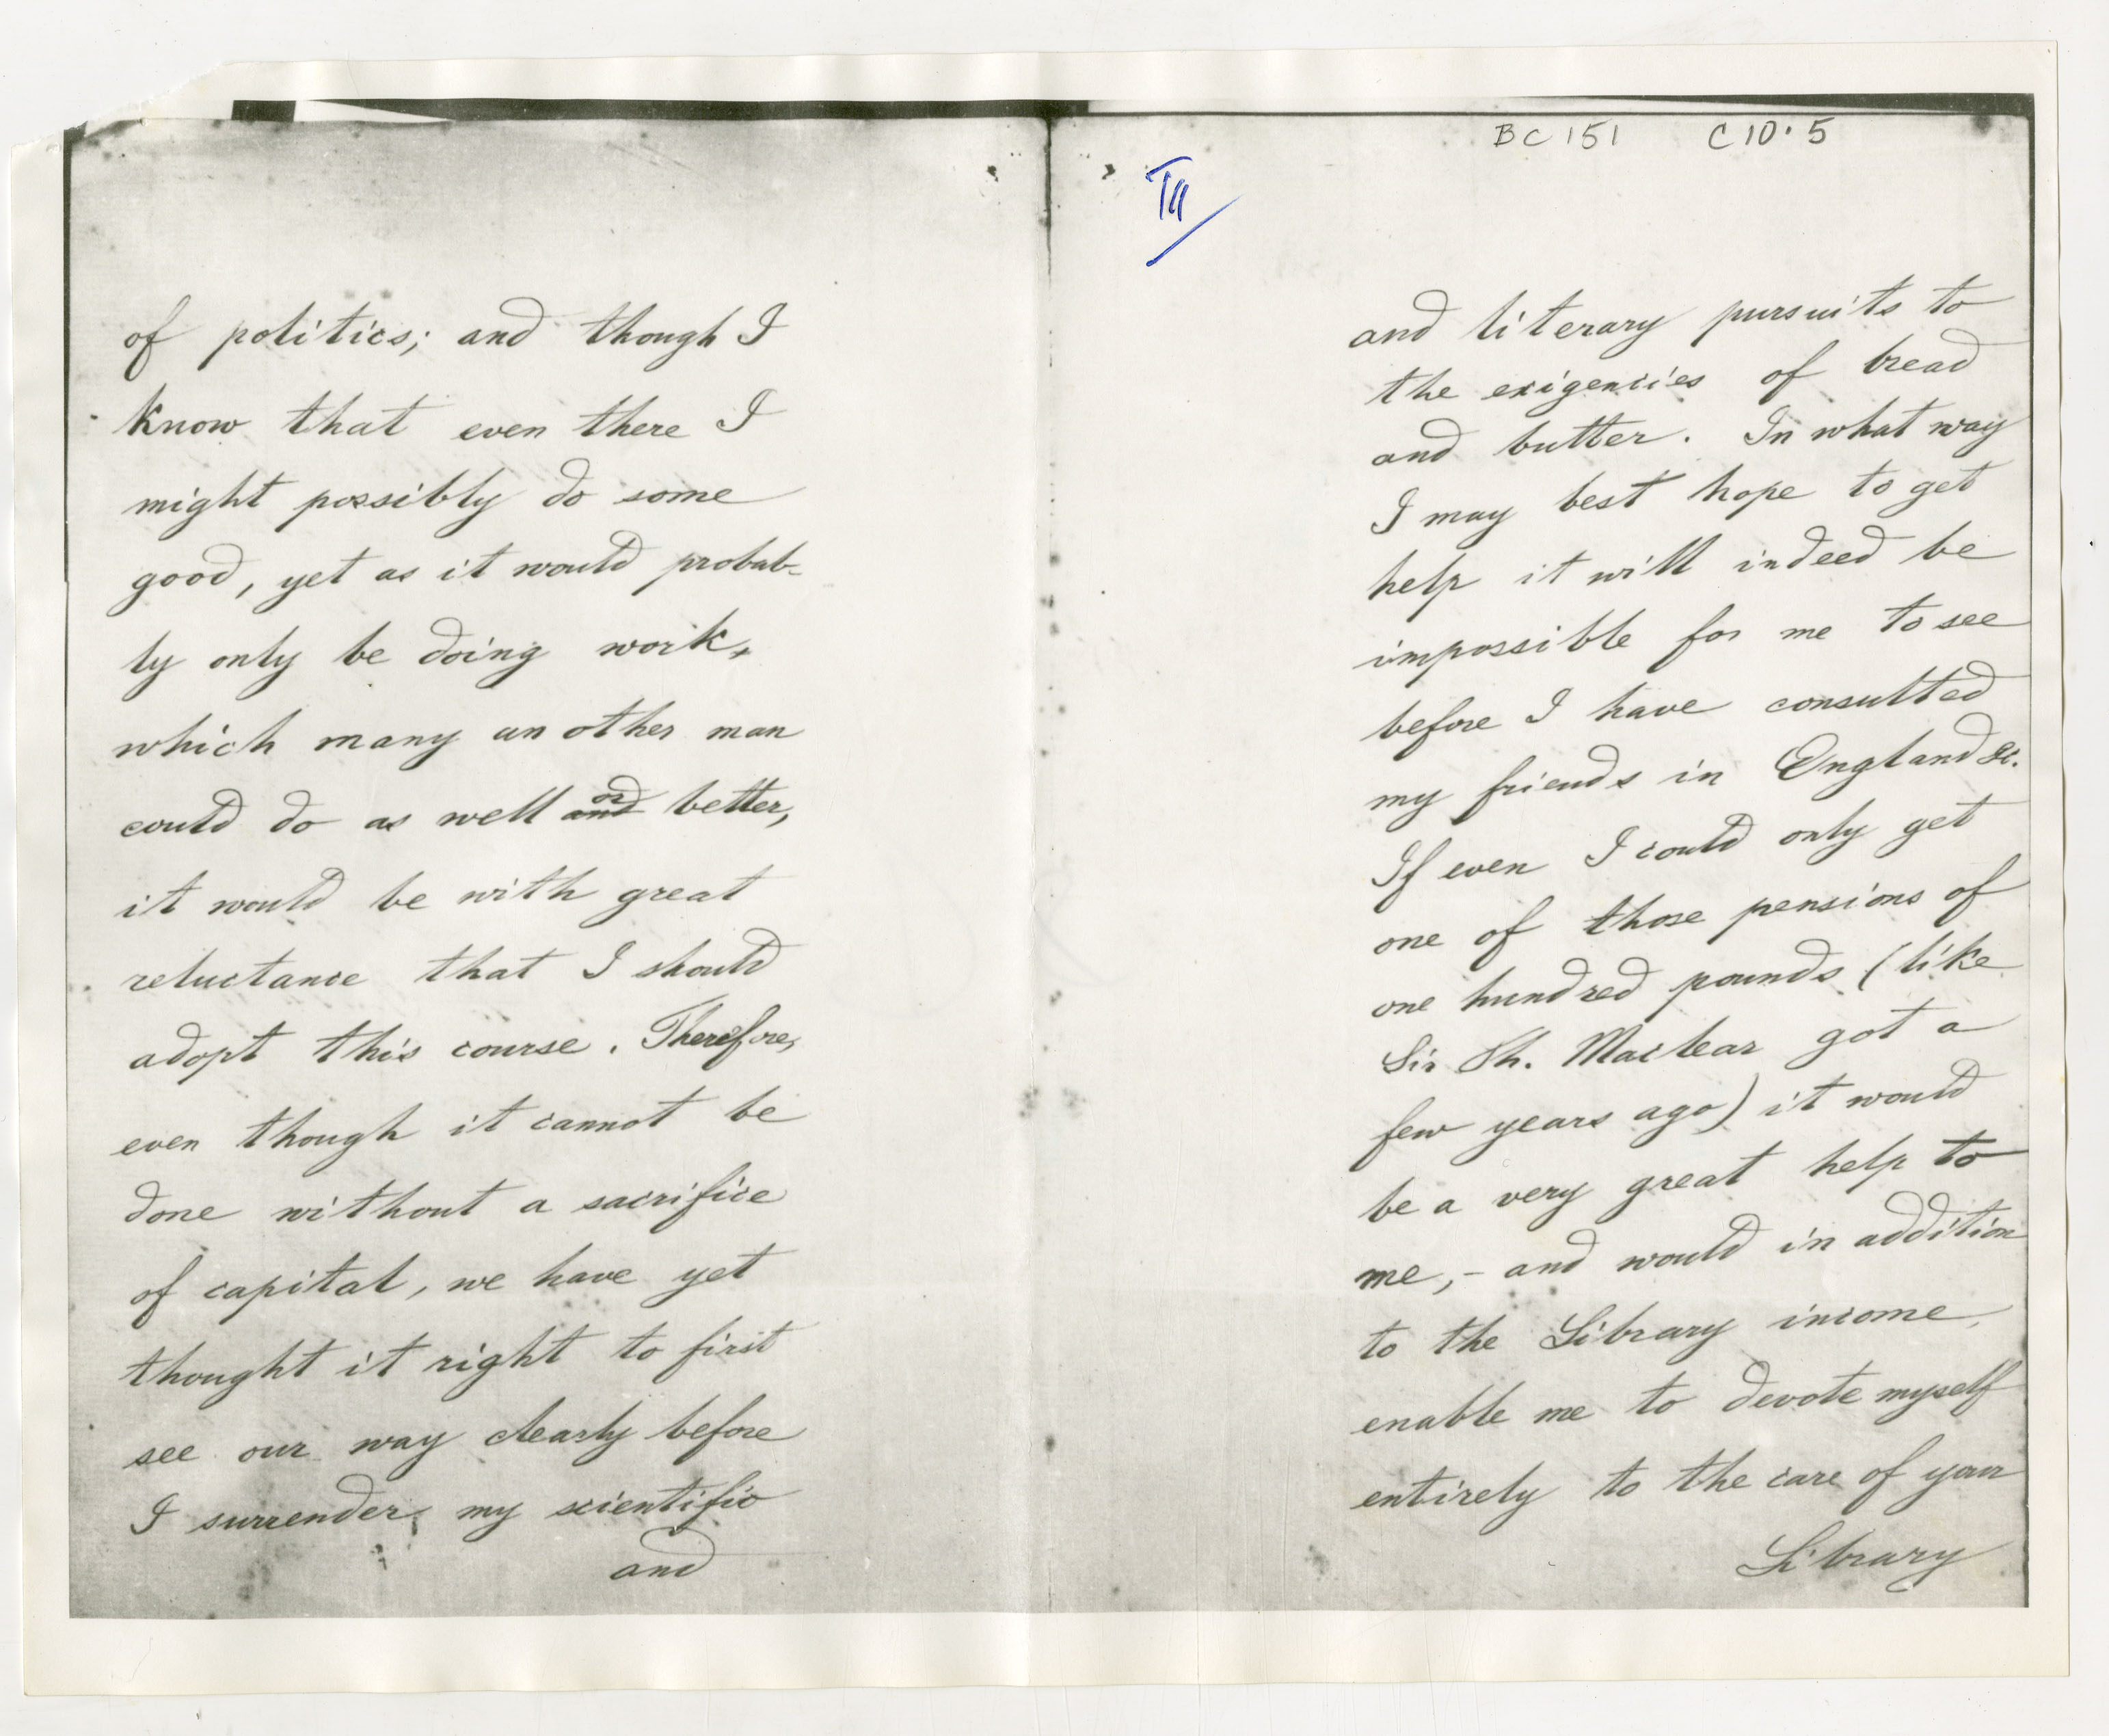 of politics; and though I
know that even there I
might possibly do some
good, yet as it would probab-
ly only be doing work,
which many another man
could do as well and or better,
it would be with great
reluctance that I should
adopt this course. Therefore,
even though it cannot be
done without a sacrifice
of capital, we have yet
thought it right to first
see our way clearly before
I surrender my scientific
and
BC 151 C10.5
III
and literary pursuits to
the exigencies of bread
and butter. In what way
I may best hope to get
help it will indeed be
impossible for me to see
before I have consulted
my friends in England &c.
If even I could only get
one of those pensions of
one hundred pounds (like
Sir Th. Maclear got a
few years ago) it would
be a very great help to
me,- and would in addition
to the Library income,
enable me to devote myself
entirely to the care of your
Library